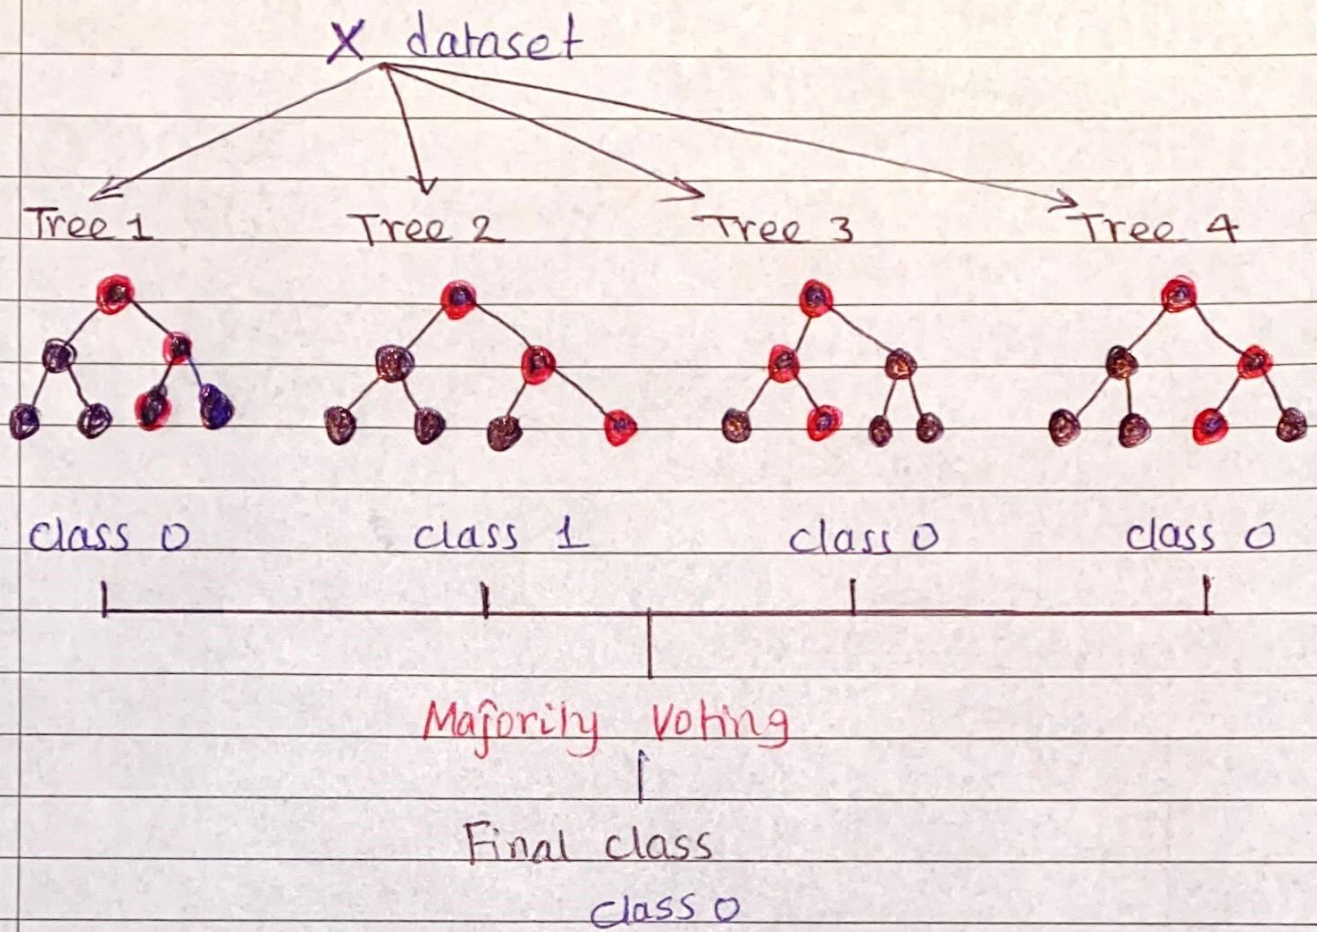 X dataset
Tree 1 Tree 2 Tree 3 Tree 4
class 0 class 1 class 0 class 0
Majority Voting
Final class
class 0